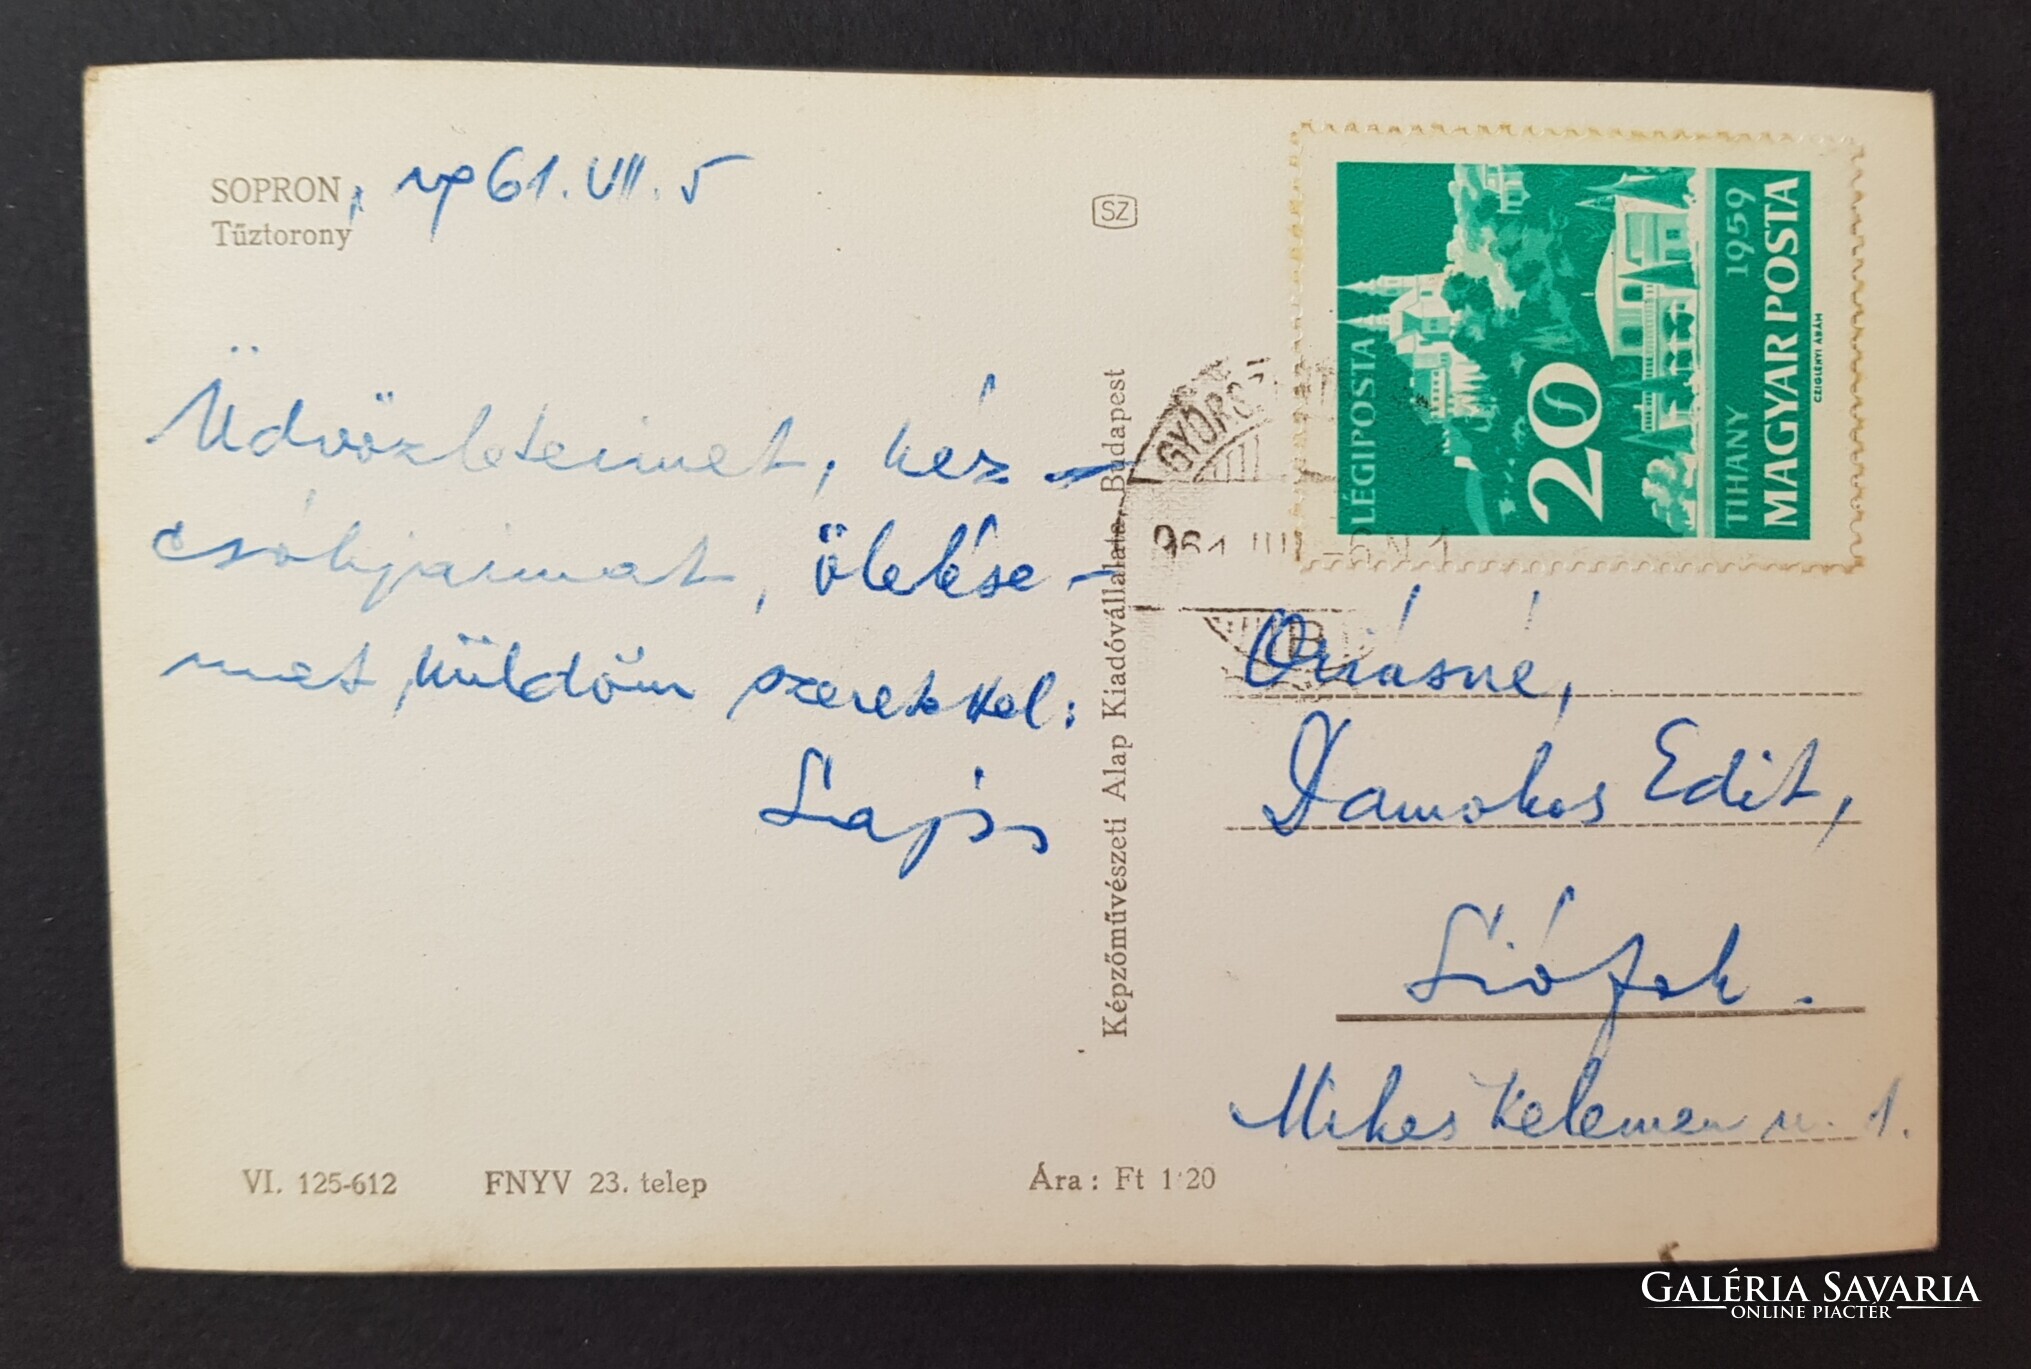 SOPRON, 1961. VII. 5
Tűztorony
Üdvözleteimet, kéz-
csókjaimat, ölelése-
met küldöm szeretettel:
Lajos
VI. 125-612 FNYV 23. telep Ára: Ft 1·20
SZ
Képzőművészeti Alap Kiadóvállalata, Budapest
GYŐR
961
LÉGIPOSTA
20
TIHANY 1959
MAGYAR POSTA
CZIGLÉNYI ÁDÁM
Oriásné,
Damokos Edit,
Siófok.
Mikes Kelemen u. 1.
GALÉRIA SAVARIA
ONLINE PIACTÉR